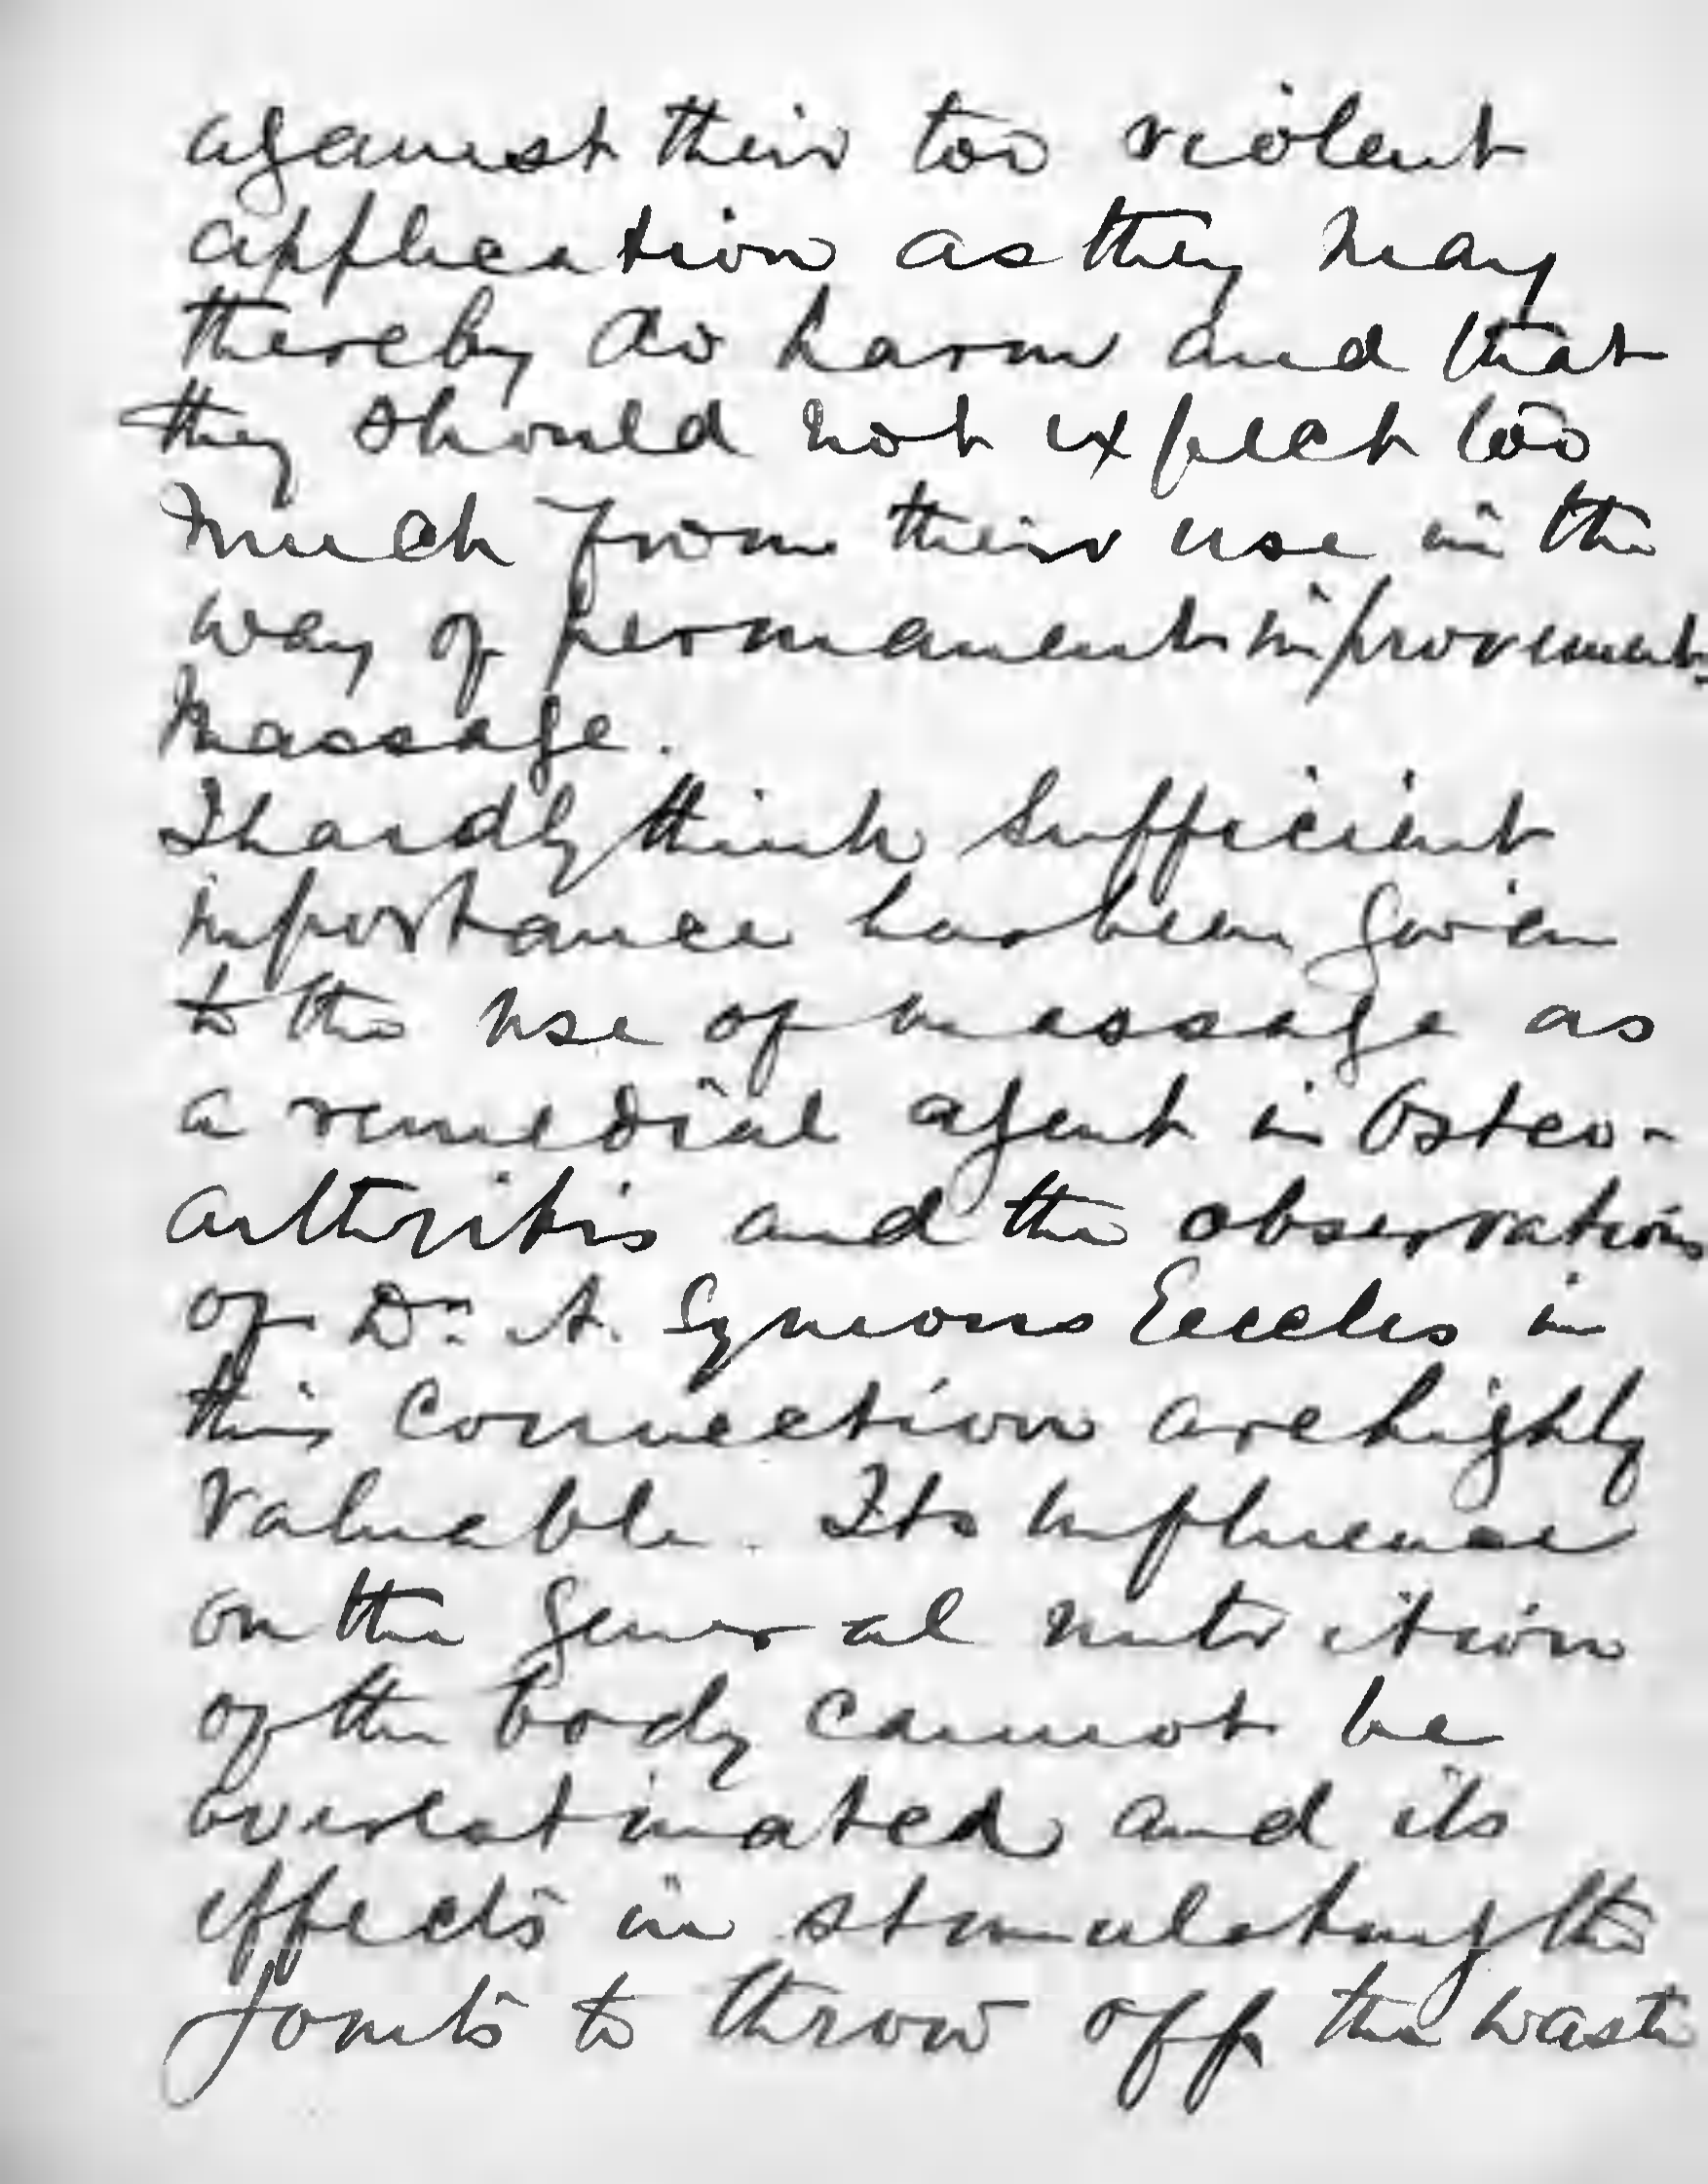 against their too violent
application as they may
thereby do harm and that
they should not expect too
much from their use in the
way of permanent improvement.
Massage.
I hardly think sufficient
importance has been given
to the use of massage as
a remedial agent in Osteo-
arthritis and the observations
of Dr. A. Symons Eccles in
this connection are highly
valuable. Its influence
on the general nutrition
of the body cannot be
overestimated and its
effects in stimulating the
joints to throw off the waste